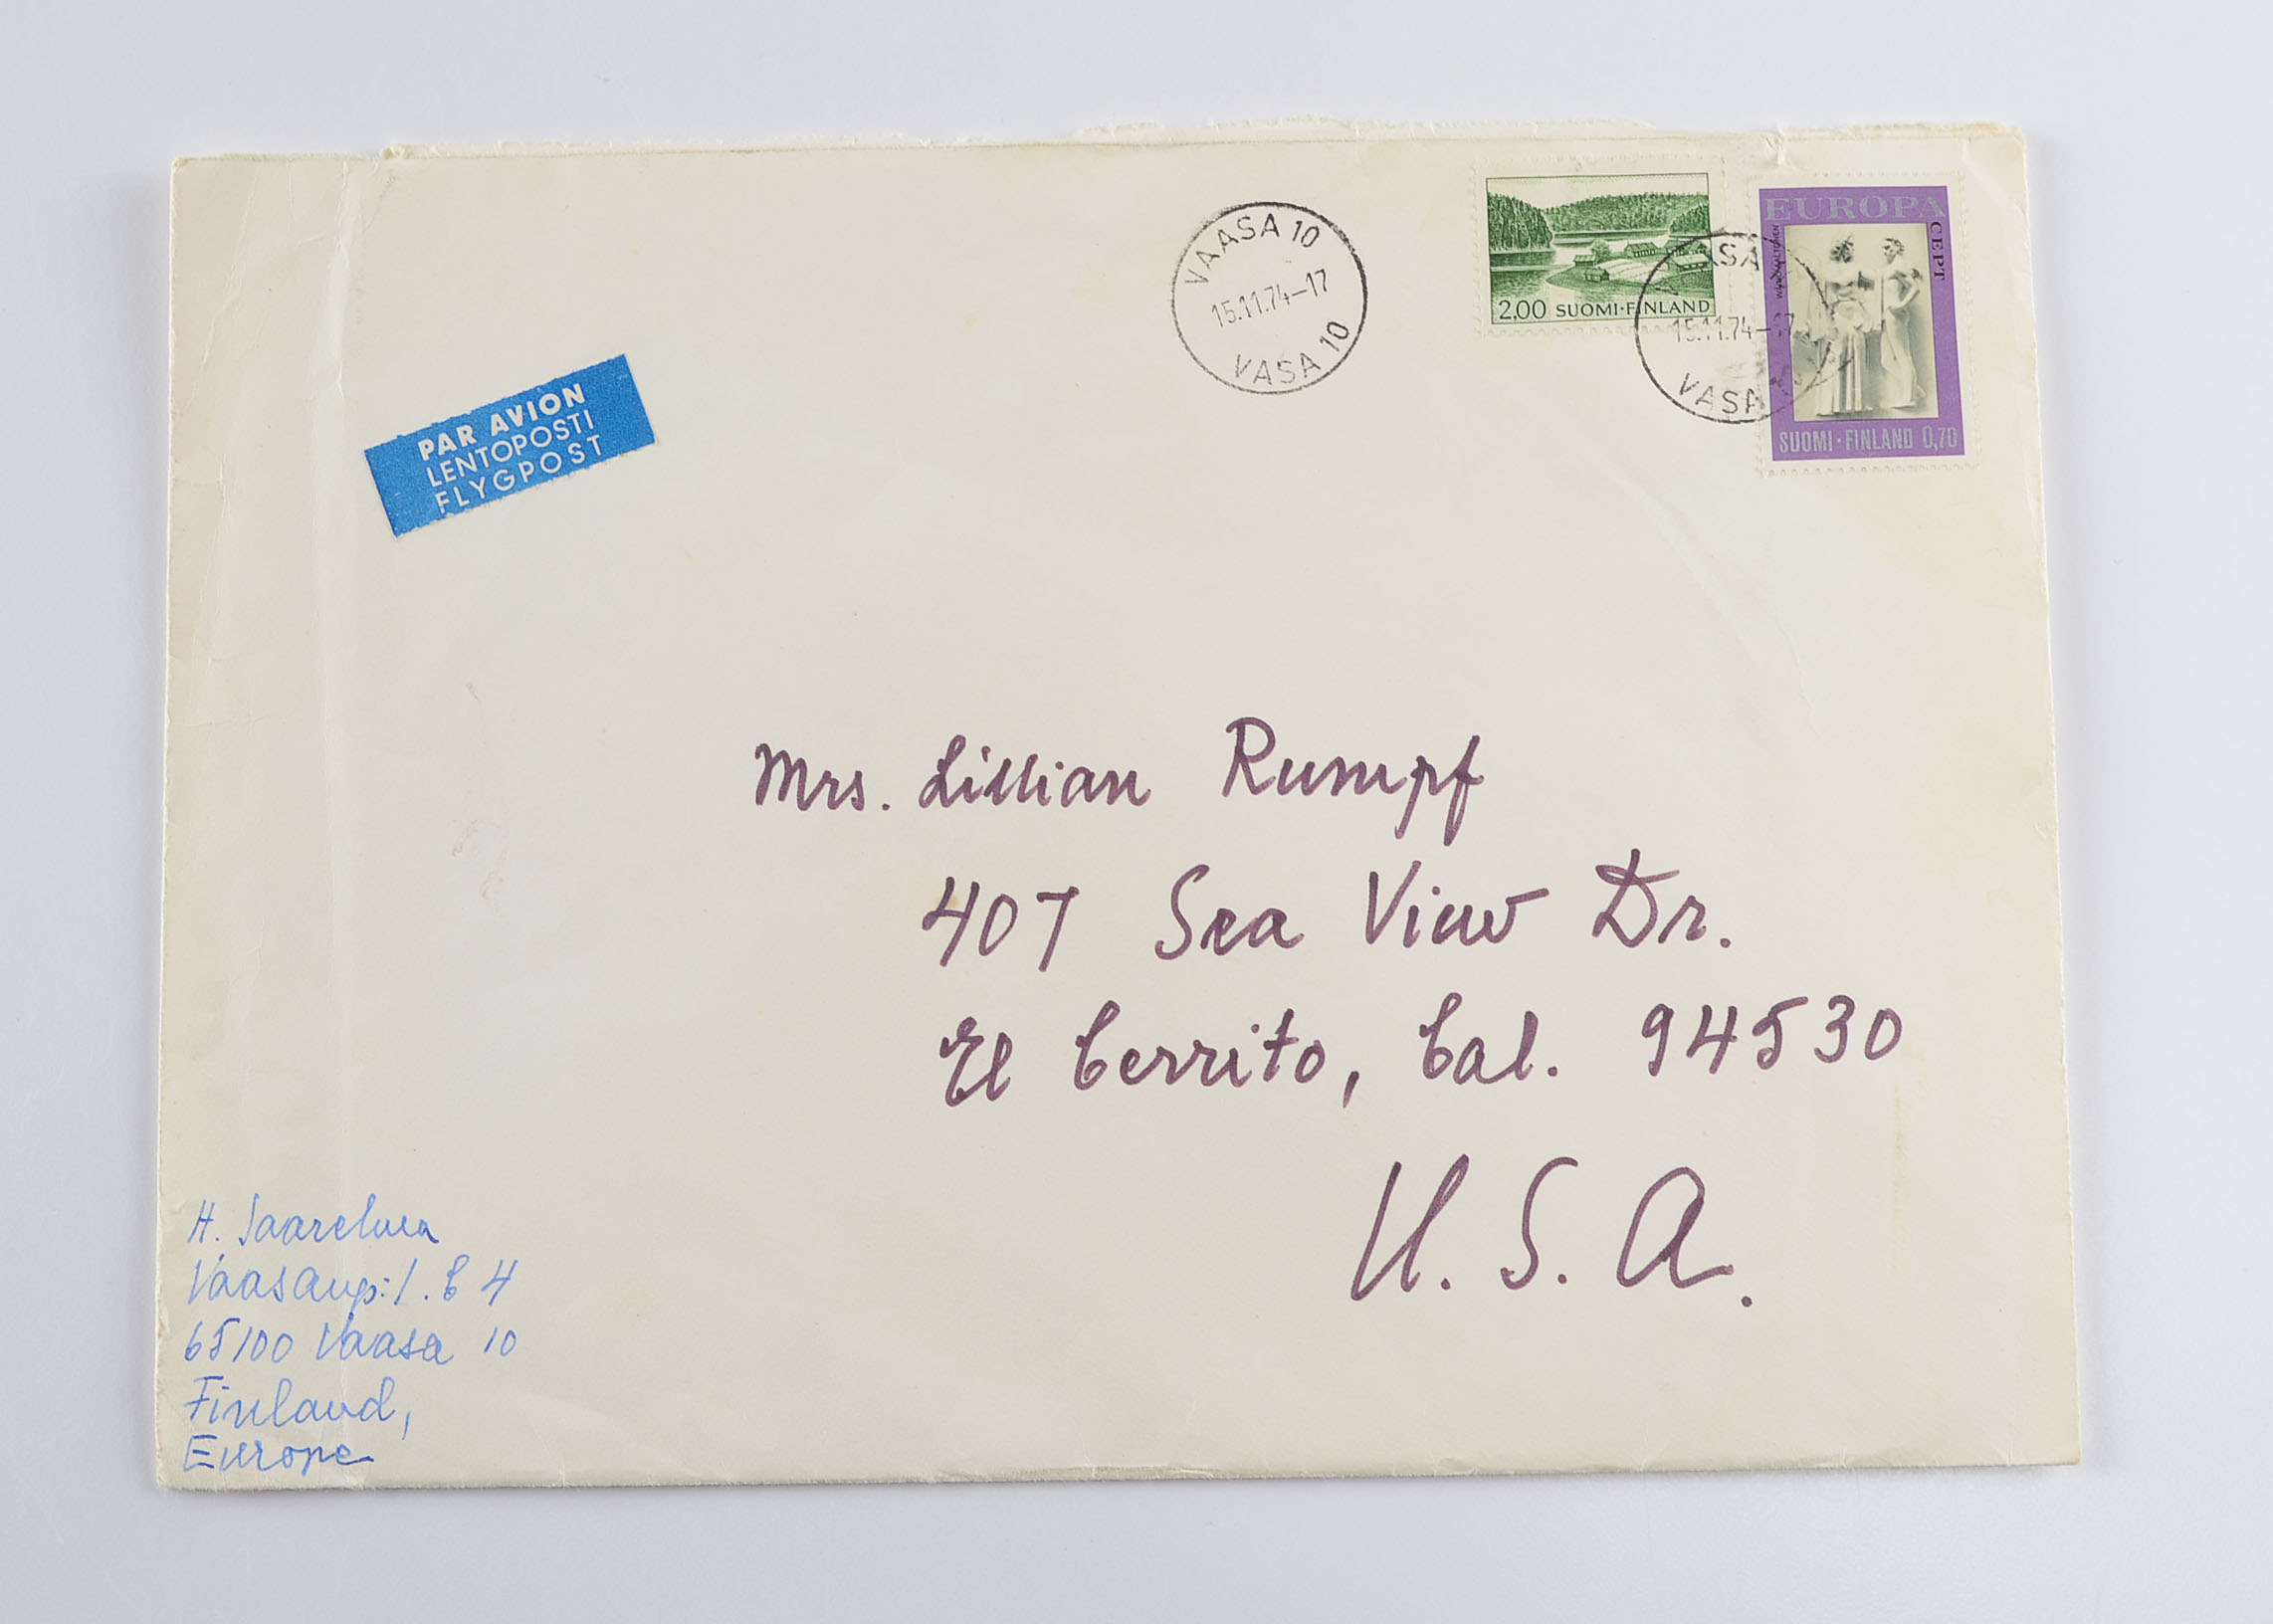 VAASA 10
15.11.74-17
VASA 10
2,00 SUOMI·FINLAND
VAASA
15.11.74-17
VASA
EUROPA
CEPT
SUOMI·FINLAND 0,70
PAR AVION
LENTOPOSTI
FLYGPOST
Mrs. Lillian Rumpf
407 Sea View Dr.
El Cerrito, Cal. 94530
U.S.A.
H. Saarelma
Vaasanp: 1. C 4
65100 Vaasa 10
Finland,
Europe